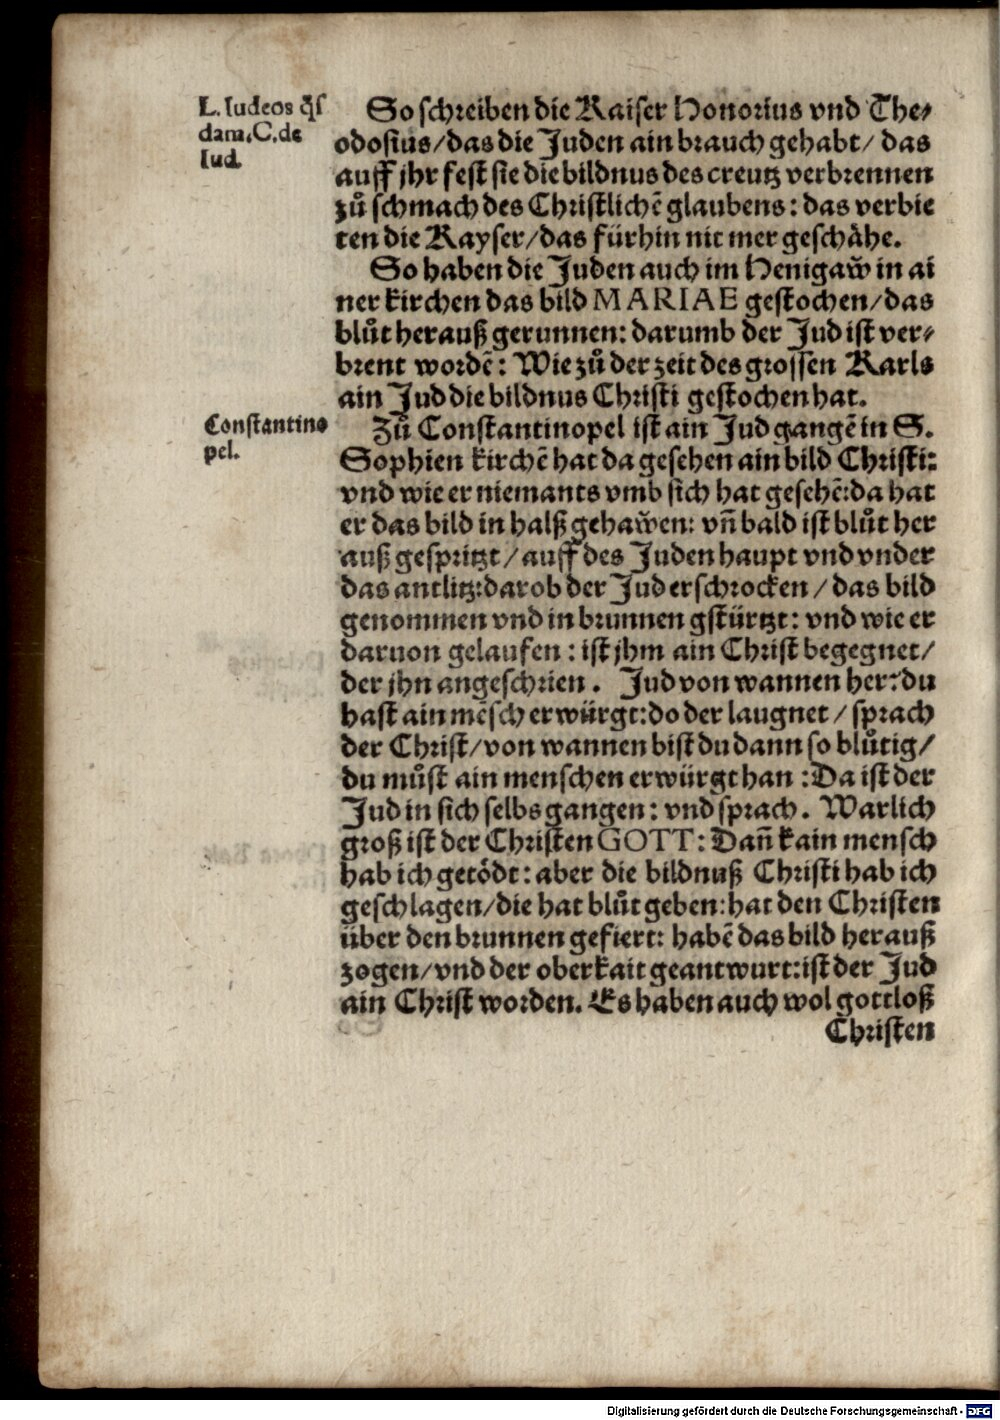 L. Iudeos q̃ſ
dam. C. de
Iud.
So schreiben die Kaiser Honorius vnd The⸗
odosius/das die Juden ain brauch gehabt/ das
auff jhr fest sie die bildnus des creutz verbrennen
zů schmach des Christlichē glaubens: das verbie
ten die Kayser/das fürhin nit mer geschåhe.
So haben die Juden auch im Henigaw̃ in ai
ner kirchen das bild MARIAE gestochen/das
blůt herauß gerunnen: darumb der Jud ist ver⸗
brent wordē: Wie zů der zeit des grossen Karls
ain Jud die bildnus Christi gestochen hat.
Constantino
pel.
Zů Constantinopel ist ain Jud gangē in S.
Sophien kirchē hat da gesehen ain bild Christi:
vnd wie er niemants vmb sich hat gesehē: da hat
er das bild in halß gehaw̃en: vñ bald ist blůt her
auß gespritzt/auff des Juden haupt vnd vnder
das antlitz: darob der Jud erschrocken/das bild
genommen vnd in brunnen gstürtzt: vnd wie er
daruon gelaufen: ist jhm ain Christ begegnet/
der jhn angeschrien. Jud von wannen her: du
hast ain mēsch erwürgt: do der laugnet/sprach
der Christ/von wannen bist du dann so blůtig/
du můst ain menschen erwürgt han: Da ist der
Jud in sich selbs gangen: vnd sprach. Warlich
groß ist der Christen GOTT: Dañ kain mensch
hab ich getödt: aber die bildnuß Christi hab ich
geschlagen/die hat blůt geben: hat den Christen
über den brunnen gefiert: habē das bild herauß
zogen/vnd der oberkait geantwurt: ist der Jud
ain Christ worden. Es haben auch wol gottloß
Christen
Digitalisierung gefördert durch die Deutsche Forschungsgemeinschaft - DFG